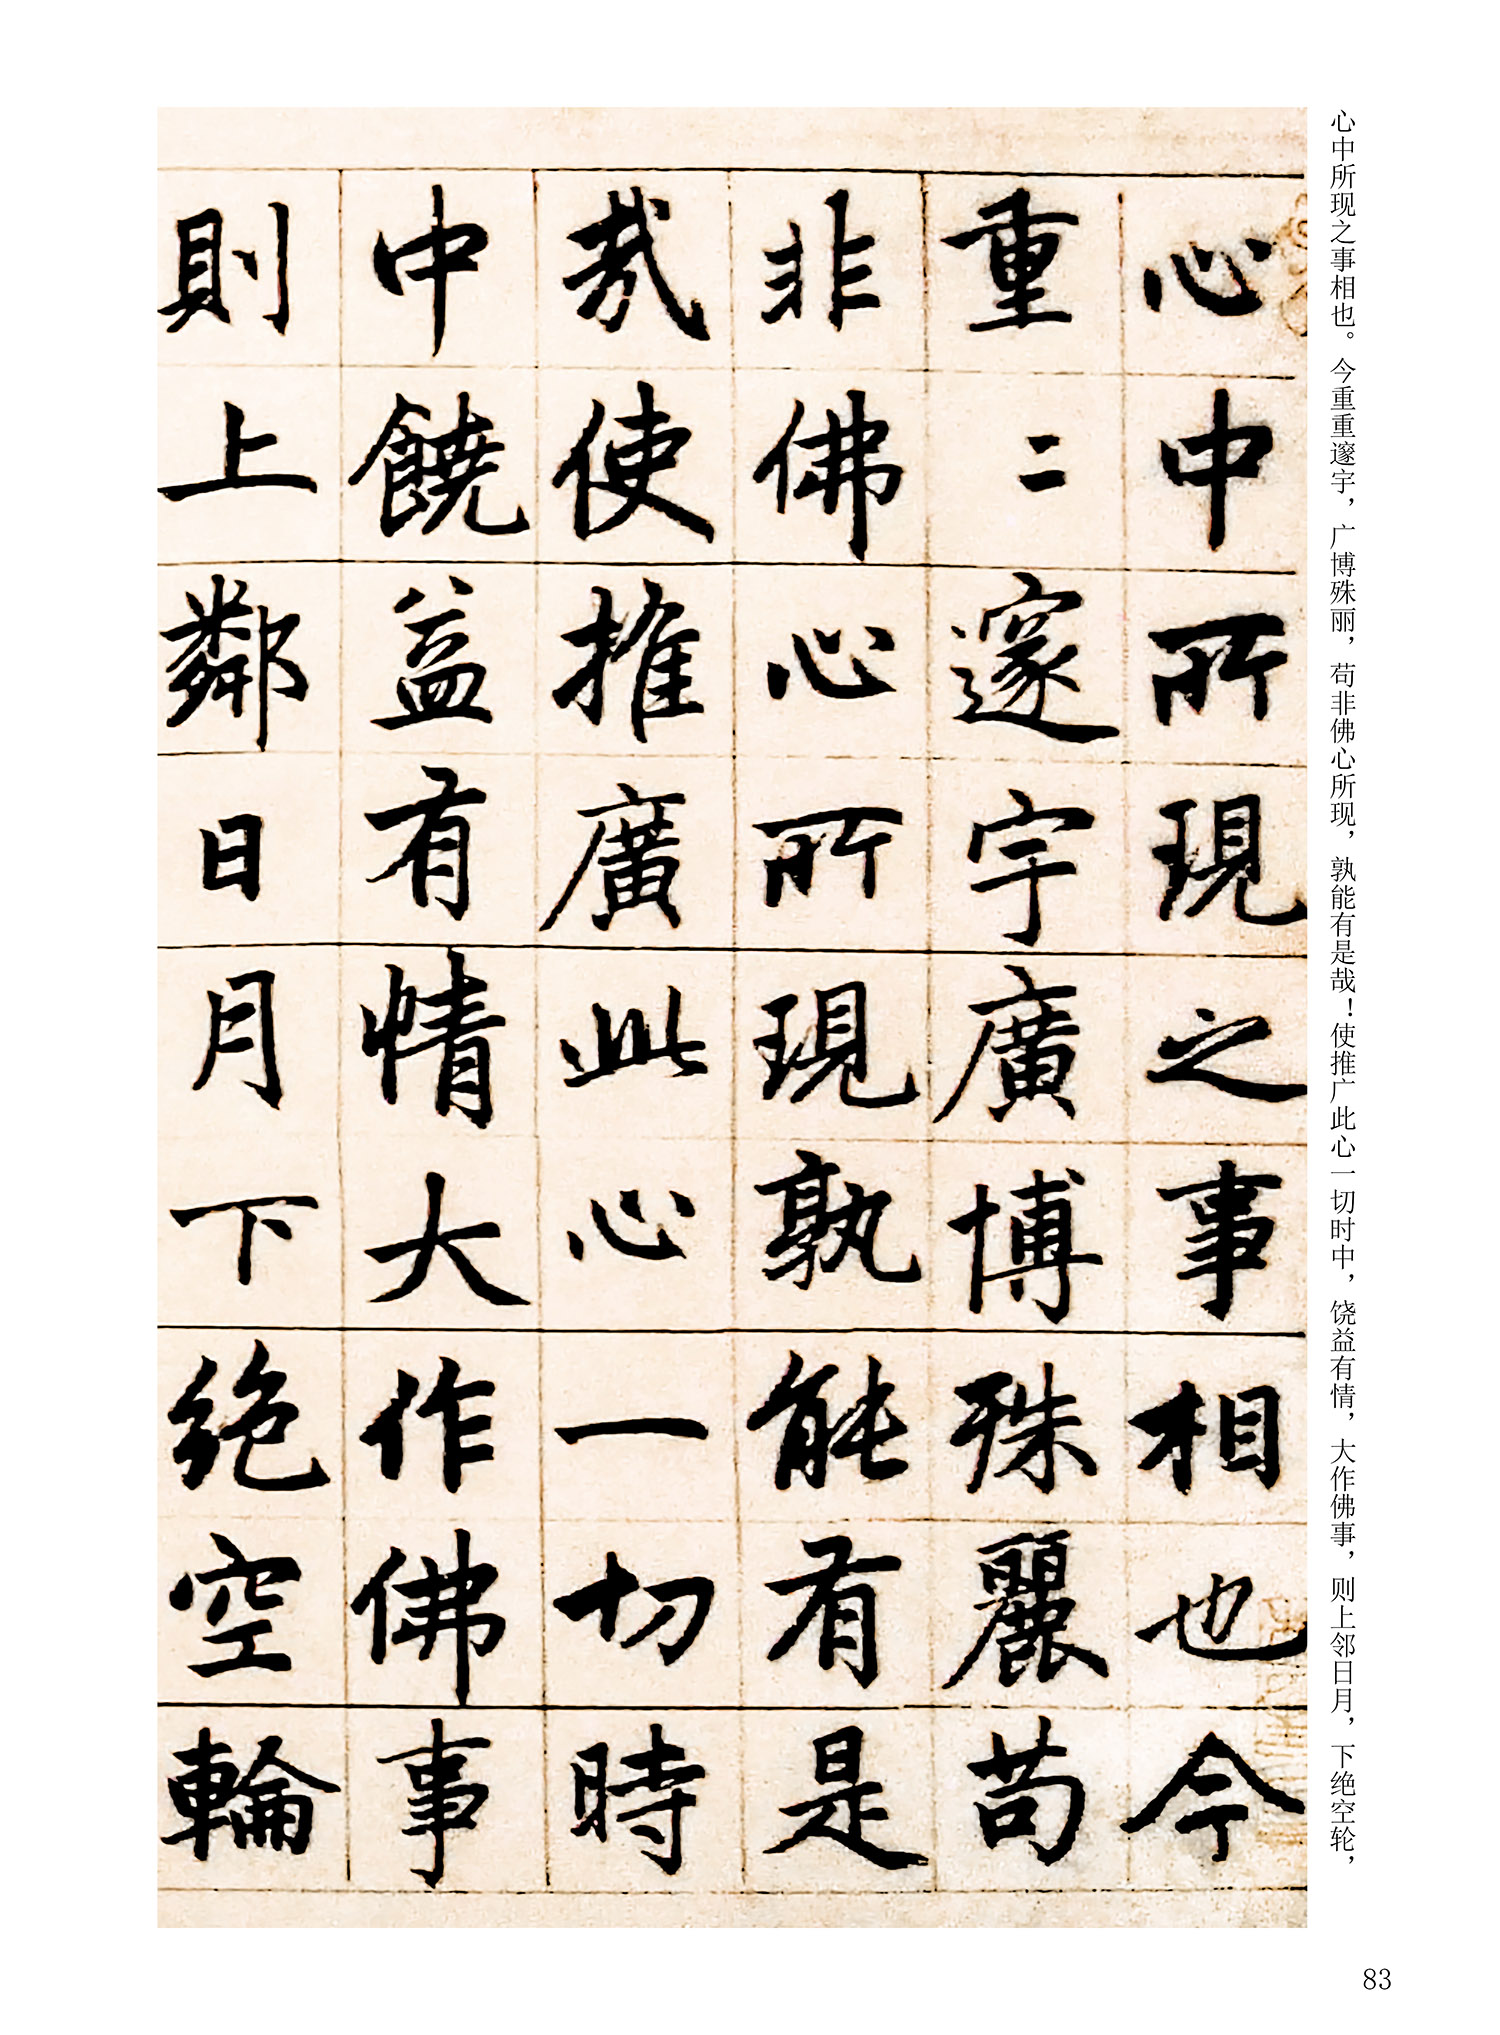 心中所现之事相也。今重重邃宇，广博殊丽，苟非佛心所现，孰能有是哉！使推广此心一切时中，饶益有情，大作佛事，则上邻日月，下绝空轮，
心中所現之事相也今
重〻邃宇廣博殊麗苟
非佛心所現孰能有是
哉使推廣此心一切時
中饒益有情大作佛事
則上鄰日月下绝空輪
83